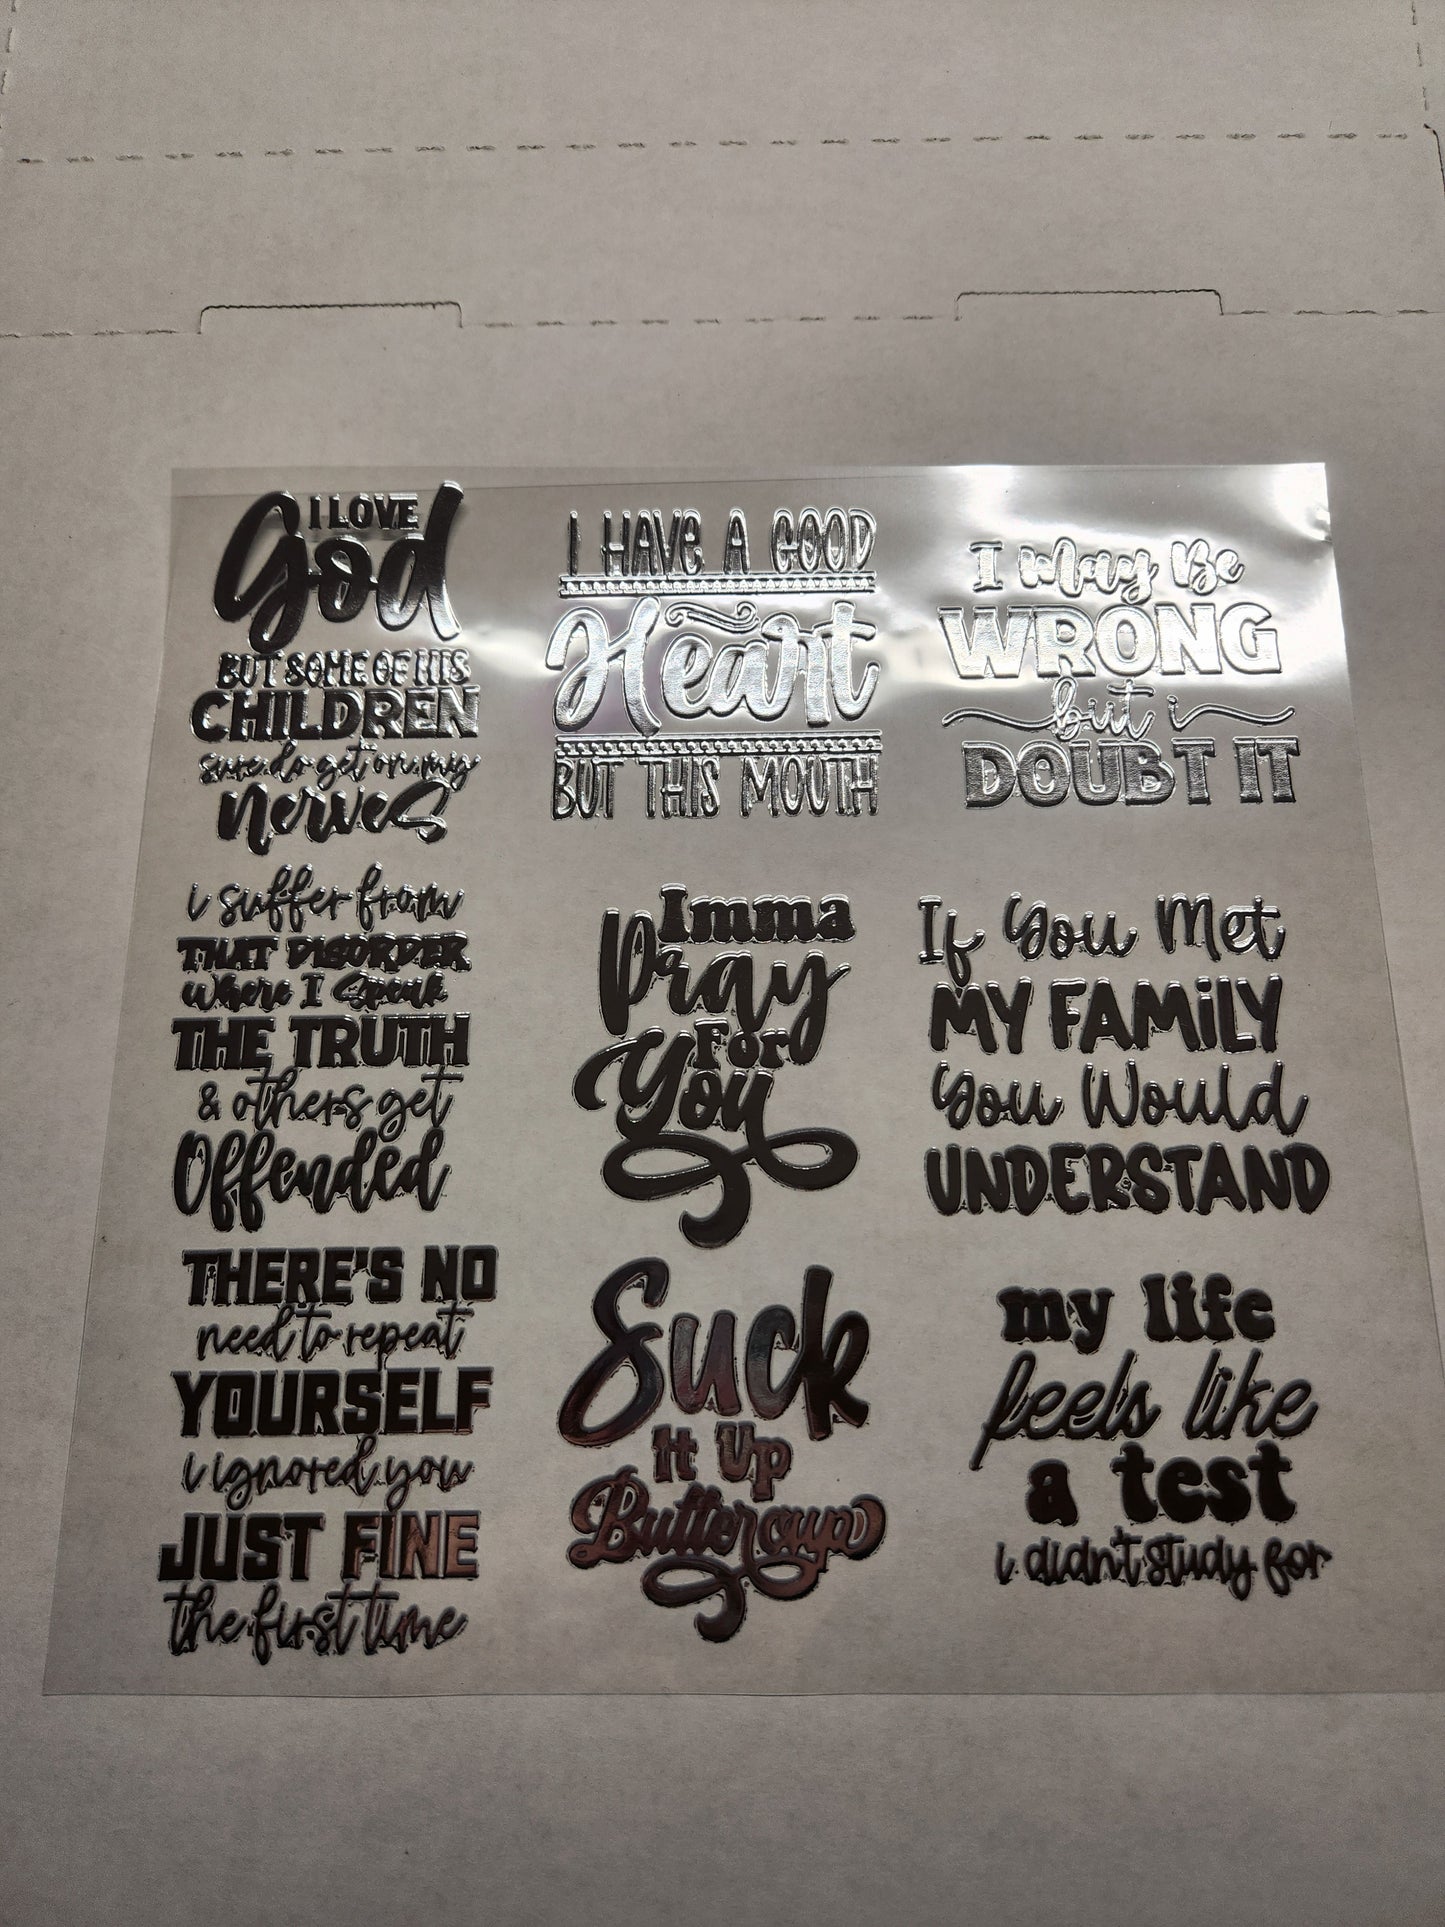 I LOVE
God
BUT SOME OF HIS
CHILDREN
sure do get on my
nerves
I HAVE A GOOD
Heart
BUT THIS MOUTH
I May Be
WRONG
but i
DOUBT IT
i suffer from
THAT DISORDER
where I Speak
THE TRUTH
& others get
Offended
Imma
Pray
For
You
If You Met
MY FAMiLY
You Would
UNDERSTAND
THERE'S NO
need to repeat
YOURSELF
i ignored you
JUST FINE
the first time
Suck
It Up
Buttercup
my life
feels like
a test
i didn't study for